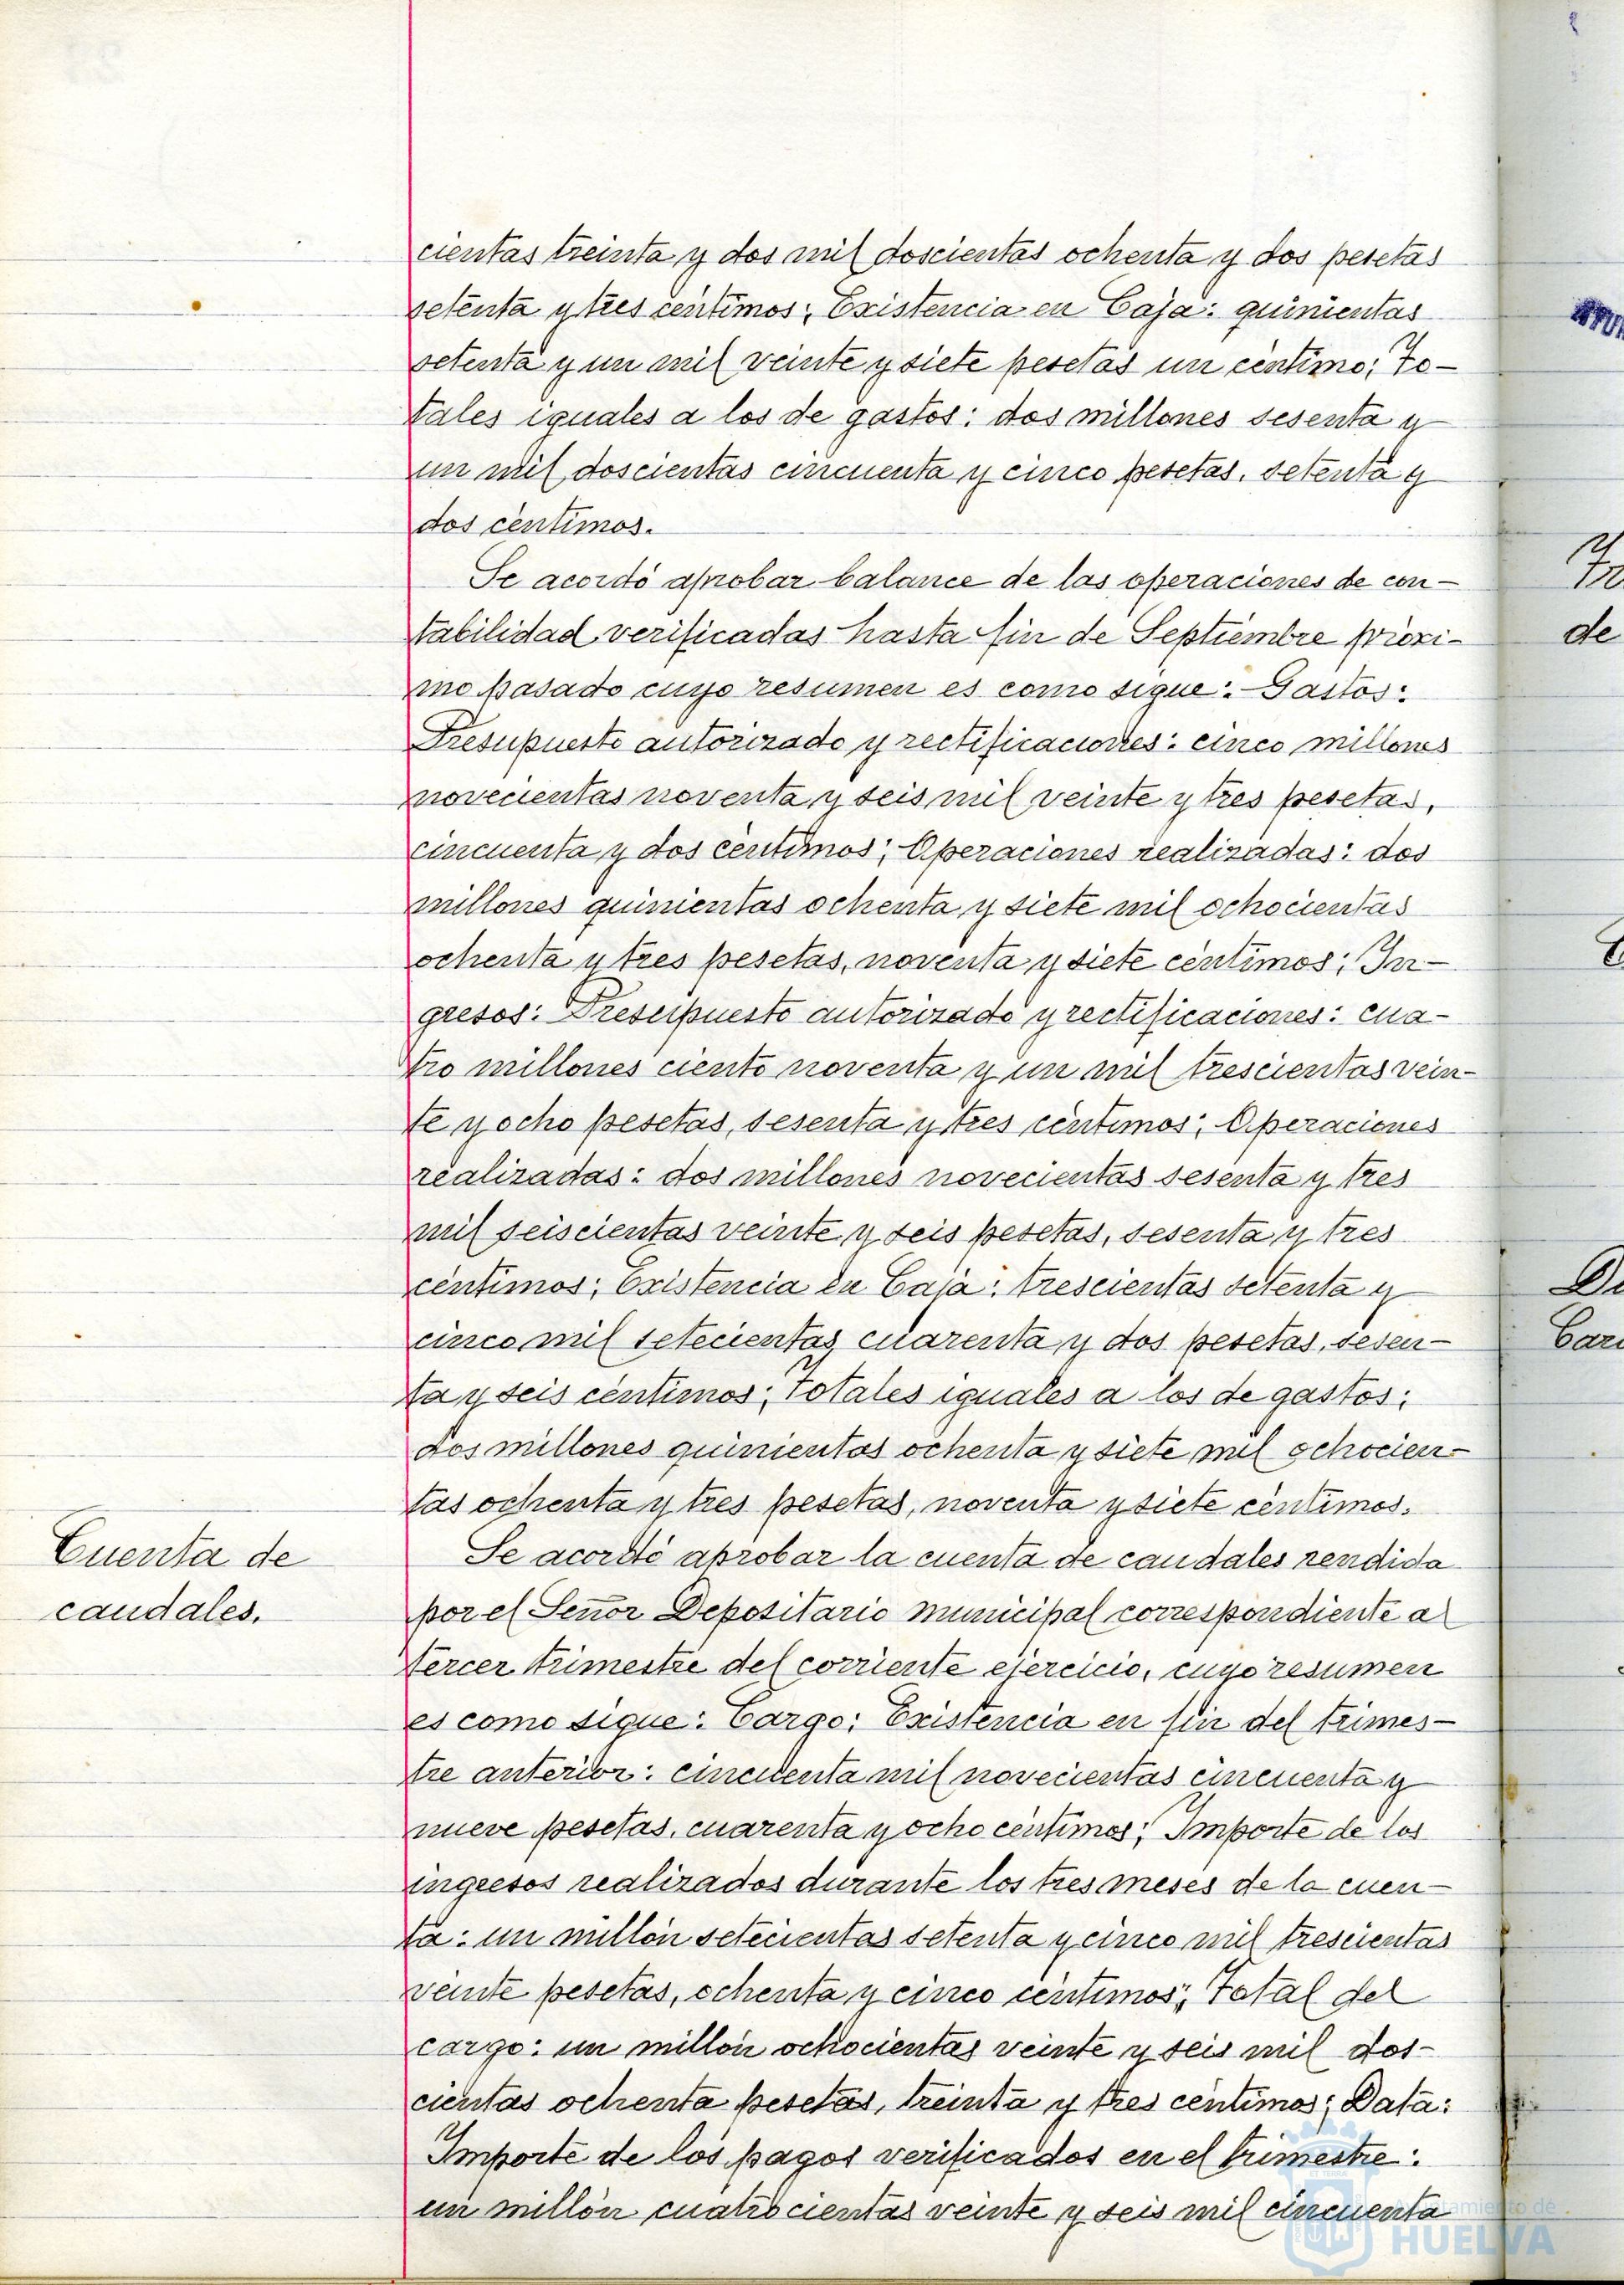 cientas treinta y dos mil doscientas ochenta y dos pesetas
setenta y tres centimos; Existencia en Caja: quinientas
setenta y un mil veinte y siete pesetas un centimo; To-
tales iguales a los de gastos: dos millones sesenta y
un mil doscientas cincuenta y cinco pesetas, setenta y
dos centimos.
Se acordó aprobar balance de las operaciones de con-
tabilidad verificadas hasta fin de Septiembre próxi-
mo pasado cuyo resumen es como sigue: Gastos:
Presupuesto autorizado y rectificaciones: cinco millones
novecientas noventa y seis mil veinte y tres pesetas,
cincuenta y dos centimos; Operaciones realizadas: dos
millones quinientas ochenta y siete mil ochocientas
ochenta y tres pesetas, noventa y siete centimos; In-
gresos: Presupuesto autorizado y rectificaciones: cua-
tro millones ciento noventa y un mil trescientas vein-
te y ocho pesetas, sesenta y tres centimos; Operaciones
realizadas: dos millones novecientas sesenta y tres
mil seiscientas veinte y seis pesetas, sesenta y tres
centimos; Existencia en Caja: trescientas setenta y
cinco mil setecientas cuarenta y dos pesetas, sesen-
ta y seis centimos; Totales iguales a los de gastos:
dos millones quinientas ochenta y siete mil ochocien-
tas ochenta y tres pesetas, noventa y siete centimos.
Cuenta de
caudales.
Se acordó aprobar la cuenta de caudales rendida
por el Señor Depositario municipal correspondiente al
tercer trimestre del corriente ejercicio, cuyo resumen
es como sigue: Cargo: Existencia en fin del trimes-
tre anterior: cincuenta mil novecientas cincuenta y
nueve pesetas, cuarenta y ocho centimos; Importe de los
ingresos realizados durante los tres meses de la cuen-
ta: un millón setecientas setenta y cinco mil trescientas
veinte pesetas, ochenta y cinco centimos; Total del
cargo: un millón ochocientas veinte y seis mil dos-
cientas ochenta pesetas, treinta y tres centimos; Data:
Importe de los pagos verificados en el trimestre:
un millón cuatrocientas veinte y seis mil cincuenta
de
Ayuntamiento de
HUELVA